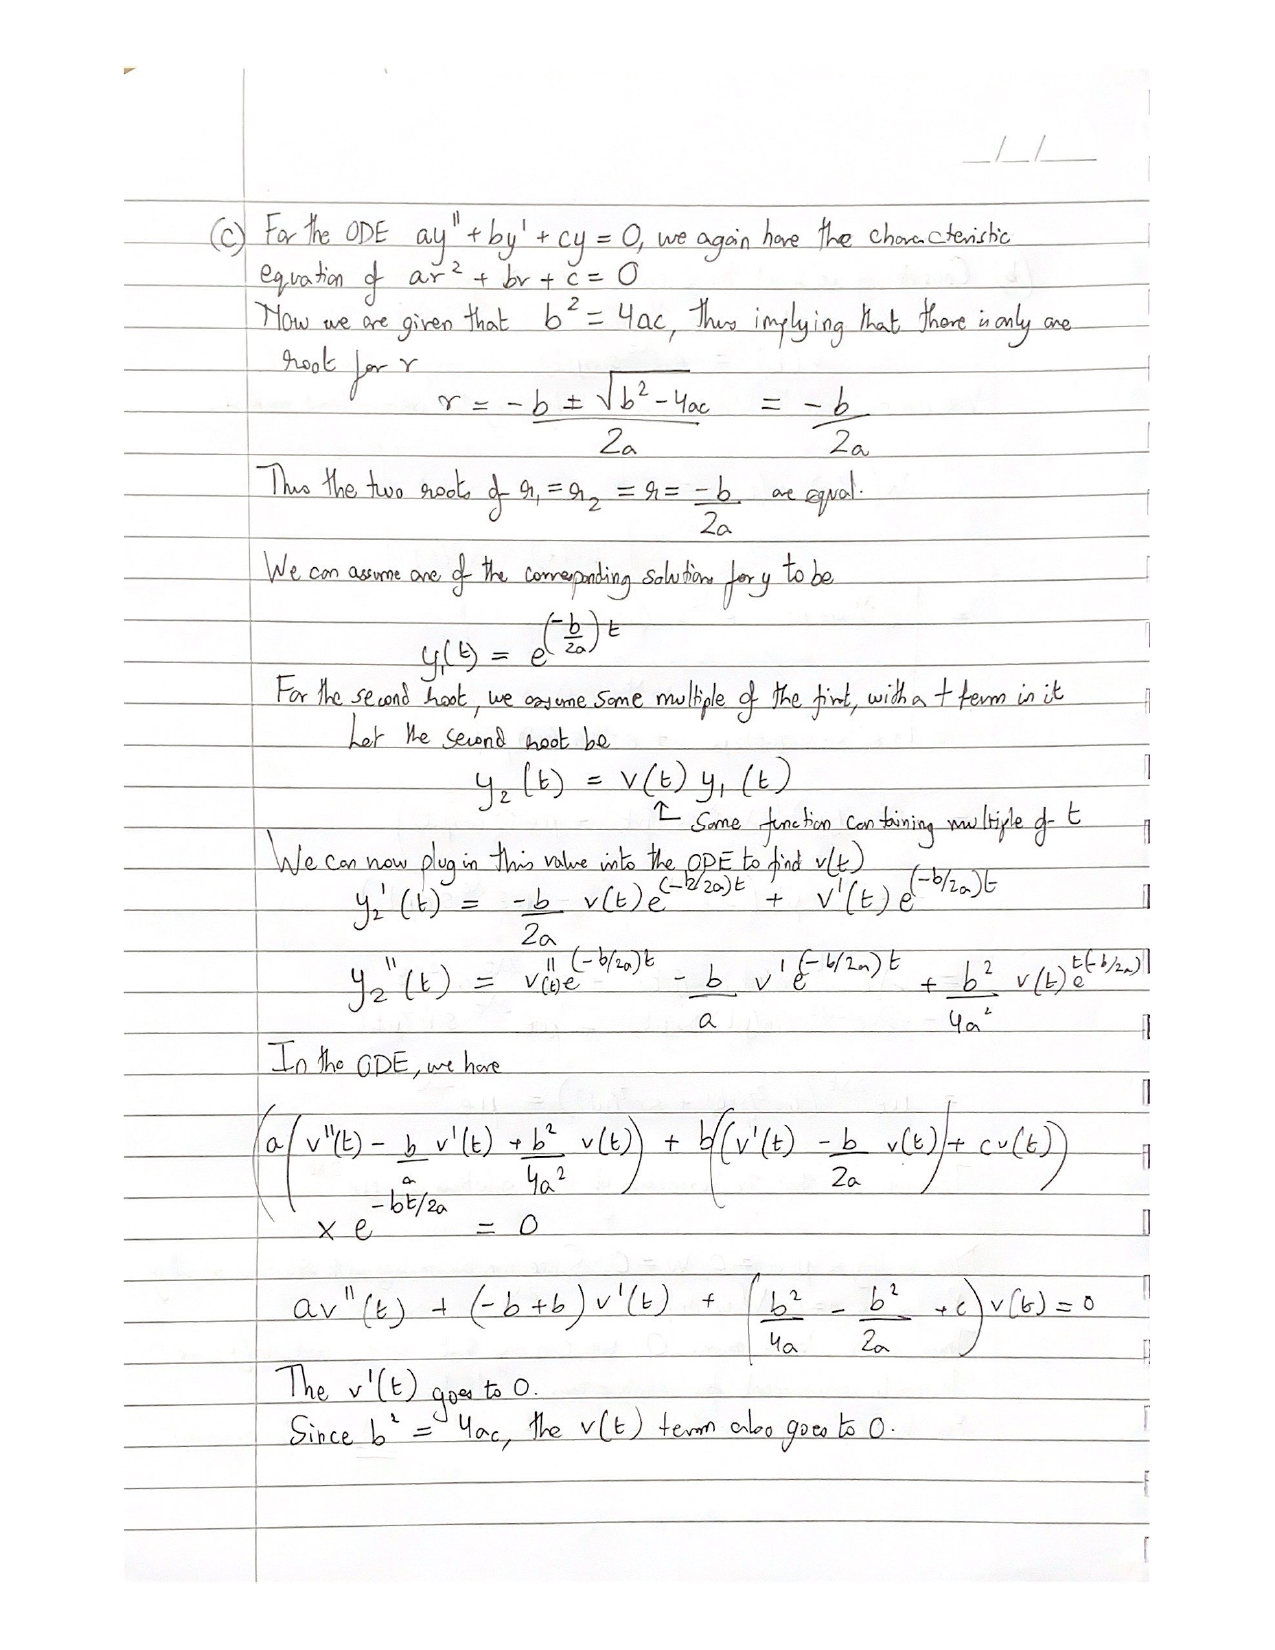 _/_/__
(c) For the ODE ay'' + by' + cy = 0, we again have the characteristic
equation of ar² + br + c = 0
Now we are given that b² = 4ac, thus implying that there is only one
root for r
r = -b ± √(b² - 4ac) / 2a = -b / 2a
Thus the two roots of r₁ = r₂ = r = -b / 2a are equal.
We can assume one of the corresponding solutions for y to be
y₁(t) = e^(-b/2a)t
For the second root, we assume some multiple of the first, with a t term in it
Let the second root be
y₂(t) = v(t) y₁(t)
↑ Some function containing multiple of t
We can now plug in this value into the ODE to find v(t)
y₂'(t) = -b/2a v(t) e^(-b/2a)t + v'(t) e^(-b/2a)t
y₂''(t) = v''(t)e^(-b/2a)t - b/a v' e^(-b/2a)t + b²/4a² v(t) e^t(-b/2a)
In the ODE, we have
(a(v''(t) - b/a v'(t) + b²/4a² v(t)) + b((v'(t) - b/2a v(t)) + cv(t))
x e^-bt/2a = 0
av''(t) + (-b+b) v'(t) + (b²/4a - b²/2a + c) v(t) = 0
The v'(t) goes to 0.
Since b² = 4ac, the v(t) term also goes to 0.